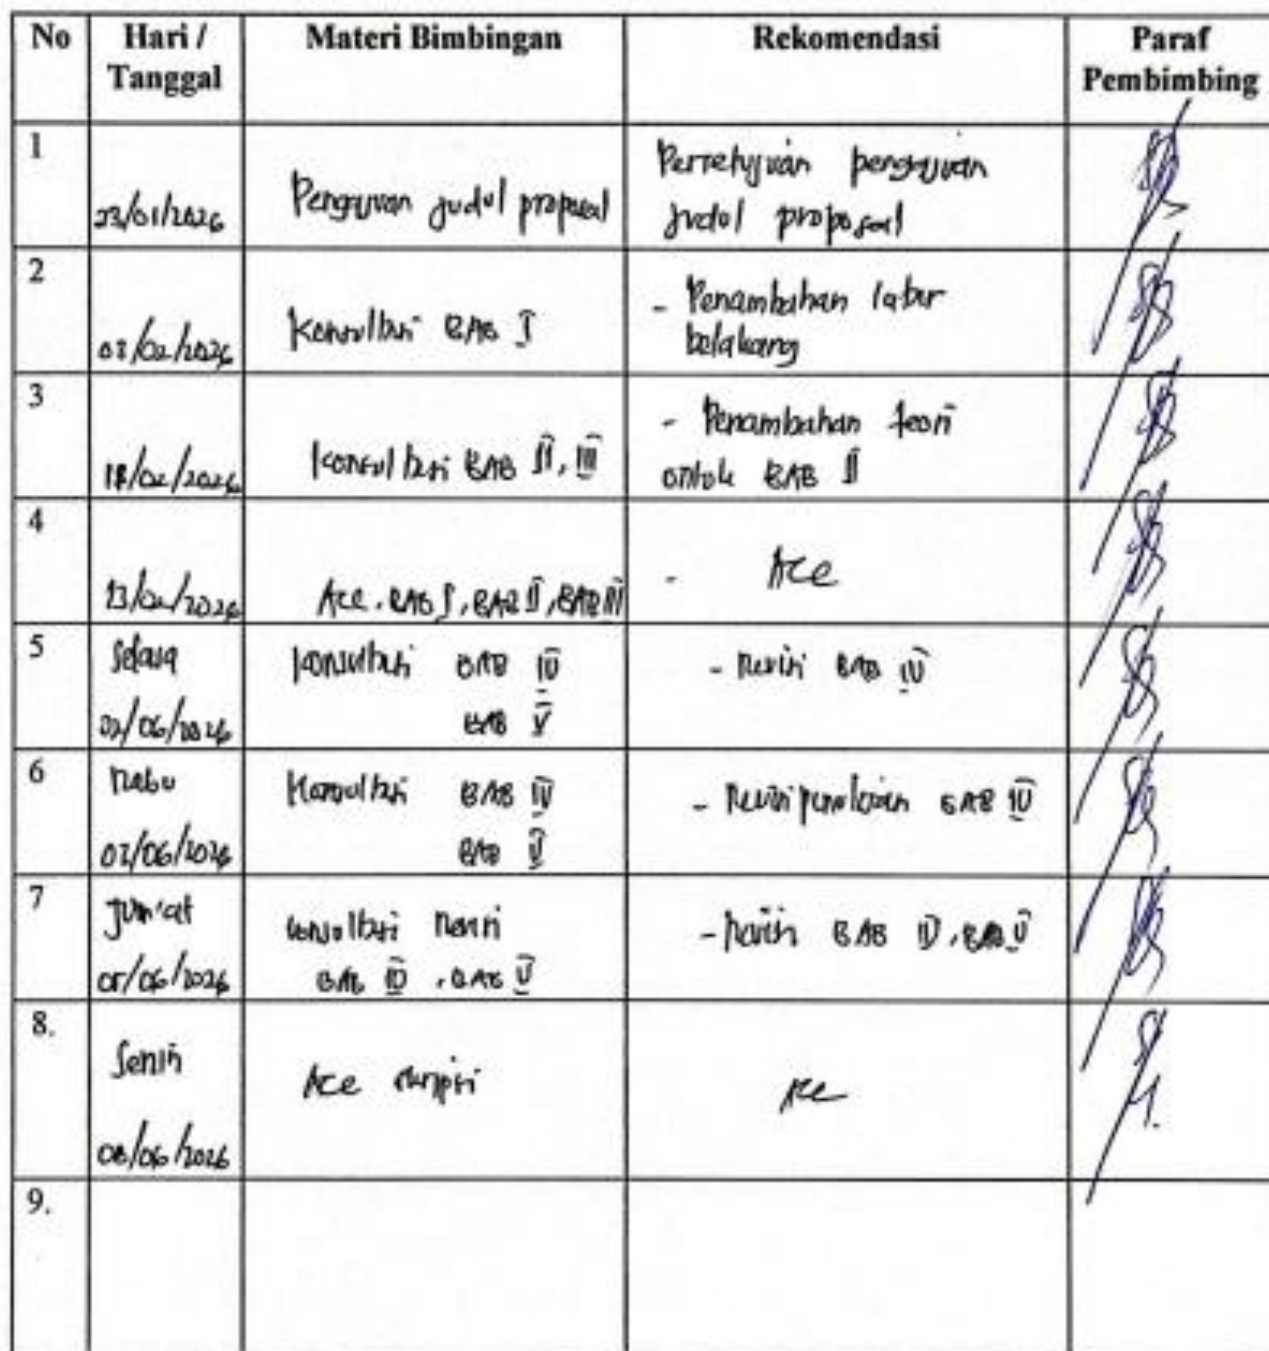 No Hari / Tanggal Materi Bimbingan Rekomendasi Paraf Pembimbing
1
23/01/2026
Pengajuan judul proposal
Persetujuan pengajuan
judul proposal
2
/02/2026
Konsultasi BAB I
- Penambahan latar
belakang
3
18/02/2026
Konsultasi BAB II, III
- Penambahan teori
untuk BAB II
4
23/02/2026
Acc. BAB I, BAB II, BAB III
- Acc
5
Selasa
02/06/2026
Konsultasi BAB IV
BAB V
- Revisi BAB IV
6
Rabu
03/06/2026
Konsultasi BAB IV
BAB V
- Revisi BAB IV
7
Jum'at
05/06/2026
Konsultasi Revisi
BAB IV, BAB V
- Revisi BAB IV, BAB V
8.
Senin
08/06/2026
Acc skripsi
Acc
9.